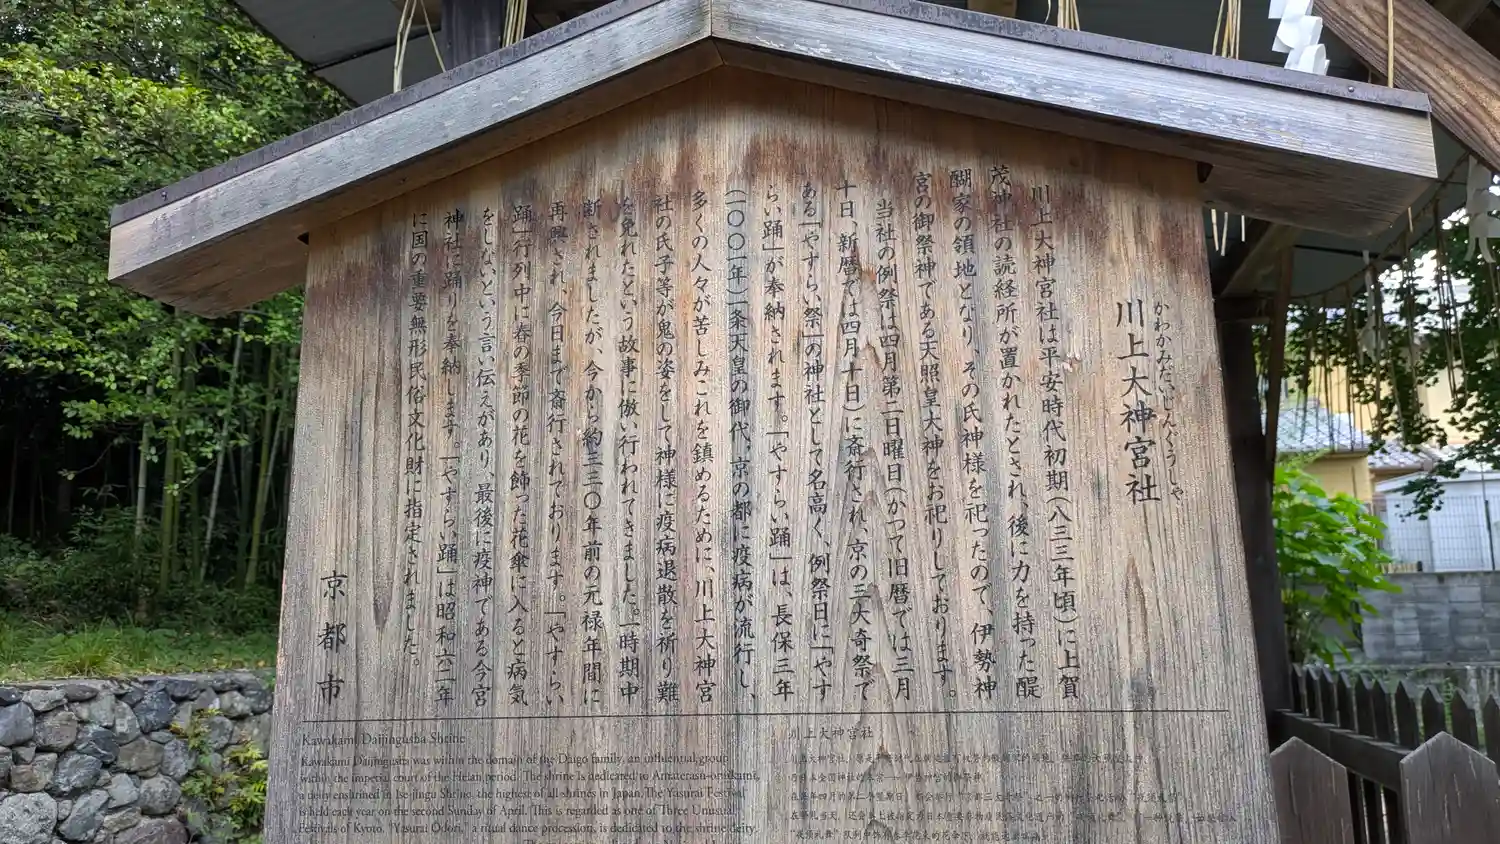 かわかみだいじんぐうしゃ
川上大神宮社
川上大神宮社は平安時代初期(八三三年頃)に上賀
茂神社の読経所が置かれたとされ、後に力を持った醍
醐家の領地となり、その氏神様を祀ったので、伊勢神
宮の御祭神である天照皇大神をお祀りしております。
当社の例祭は四月第二日曜日(かつて旧暦では三月
十日、新暦では四月十日)に斎行され、京の三大奇祭で
ある「やすらい祭」の神社として名高く、例祭日に「やす
らい踊」が奉納されます。「やすらい踊」は、長保三年
(一〇〇一年)一条天皇の御代、京の都に疫病が流行し、
多くの人々が苦しみこれを鎮めるために、川上大神宮
社の氏子等が鬼の姿をして神様に疫病退散を祈り難
を免れたという故事に倣い行われてきました。一時期中
断されましたが、今から約三三〇年前の元禄年間に
再興され、今日まで斎行されております。「やすらい
踊」行列中に春の季節の花を飾った花傘に入ると病気
をしないという言い伝えがあり、最後に疫神である今宮
神社に踊りを奉納します。「やすらい踊」は昭和六二年
に国の重要無形民俗文化財に指定されました。
京都市
Kawakami Daijingusha Shrine
Kawakami Daijingusha was within the domain of the Daigo family, an influential group
within the imperial court of the Heian period. The shrine is dedicated to Amaterasu-omikami,
a deity enshrined in Ise-jingu Shrine, the highest of all shrines in Japan. The Yasurai Festival
is held each year on the second Sunday of April. This is regarded as one of Three Unusual
Festivals of Kyoto. "Yasurai Odori," a ritual dance procession, is dedicated to the shrine deity.
川上大神宮社